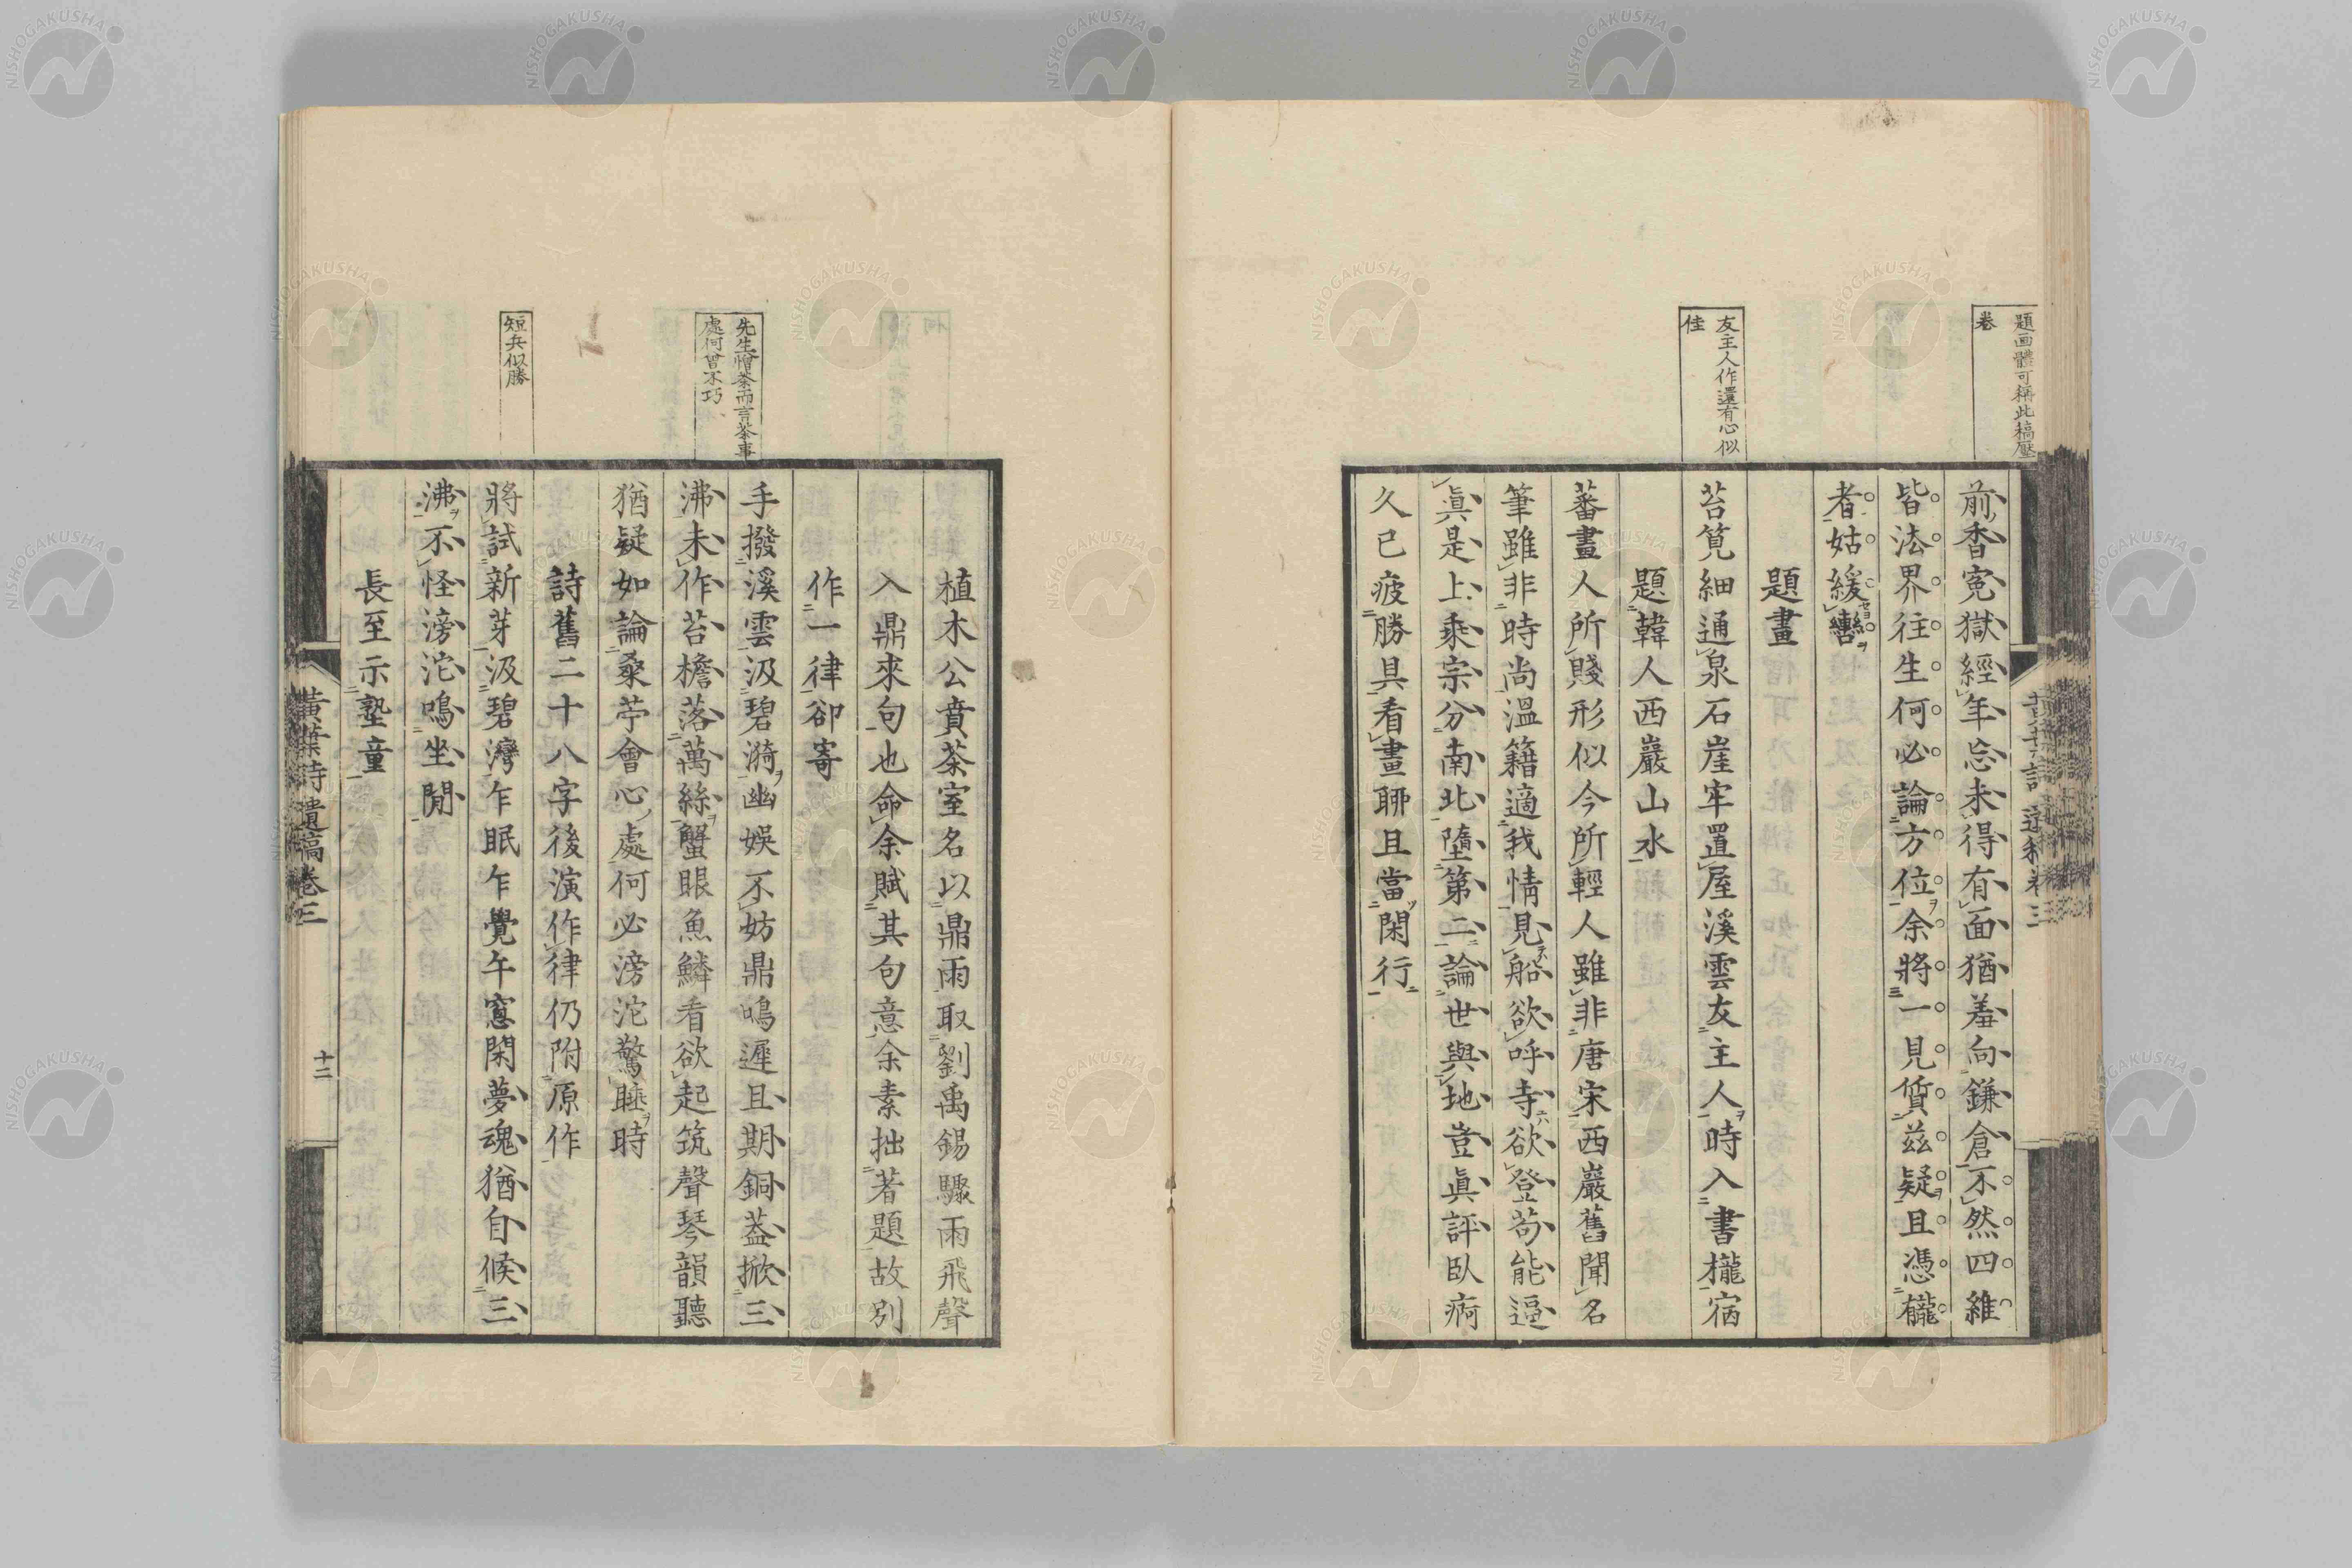 題画體可稱此稿壓
卷
友主人作還有心似
佳
前香寃獄經年忘未得有面猶羞向鎌倉不然四維
皆法界往生何必論方位余將一見質茲疑且憑櫳
者姑緩轡
題畫
苔筧細通泉石崖牢置屋溪雲友主人時入書櫳宿
題韓人西巖山水
蕃畫人所賤形似今所輕人雖非唐宋西巖舊聞名
筆雖非時尚溫籍適我情見船欲呼寺欲登苟能逼
眞是上乘宗分南北墮第二論世與地豈眞評臥痾
久已疲勝具看畫聊且當閑行
先生憎茶而言茶事
處何曾不巧
短兵似勝
植木公賁茶室名以鼎雨取劉禹錫驟雨飛聲
入鼎來句也命余賦其句意余素拙著題故別
作一律卻寄
手撥溪雲汲碧漪幽娛不妨鼎鳴遲且期銅蓋掀三
沸未作苔檐落萬絲蟹眼魚鱗看欲起筑聲琴韻聽
猶疑如論桑苧會心處何必滂沱驚睡時
詩舊二十八字後演作律仍附原作
將試新芽汲碧灣乍眠乍覺午窓閑夢魂猶自候三
沸不怪滂沱鳴坐間
長至示塾童
黃葉詩遺稿卷三
十二